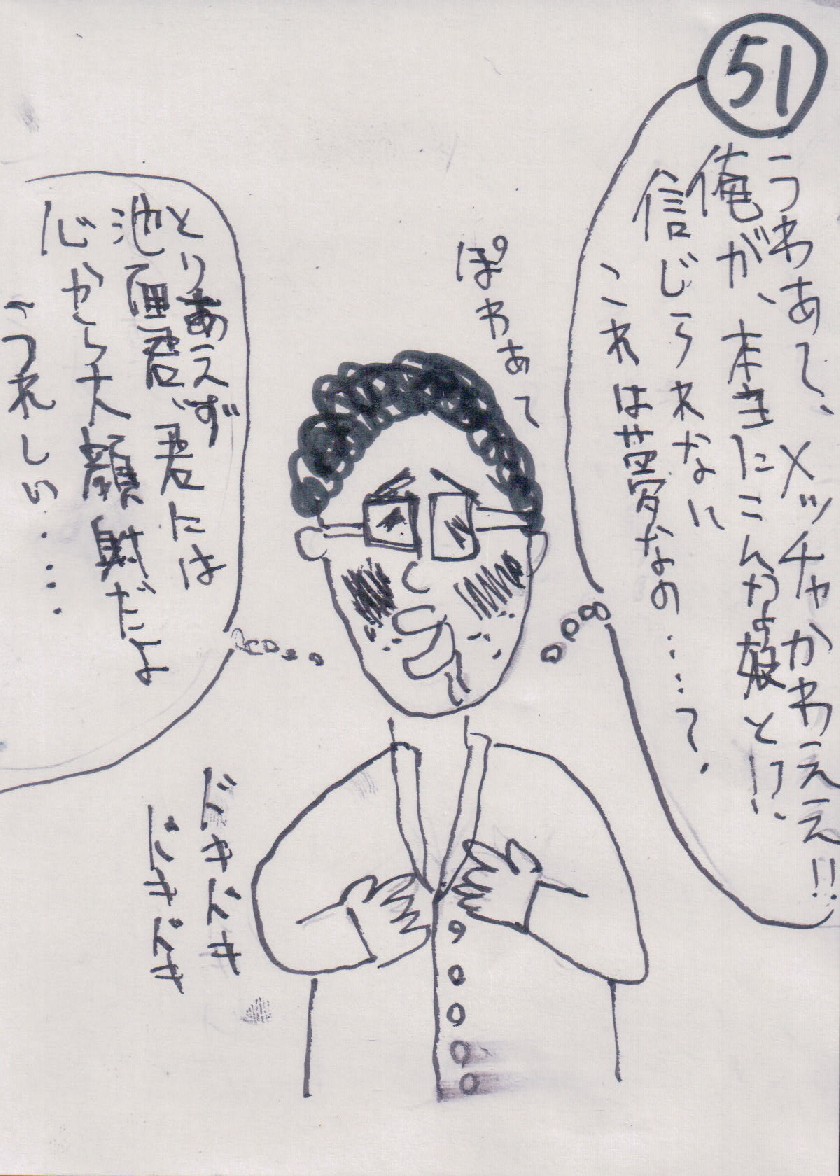 51
うわあて、メッチャかわええ!!
俺が、本当にこんな娘と!?
信じられない
これは夢なの……て、
ぽわあて
とりあえず
池面君、君には
心から大顔射だよ
うれしい....
ドキドキ
ドキドキ